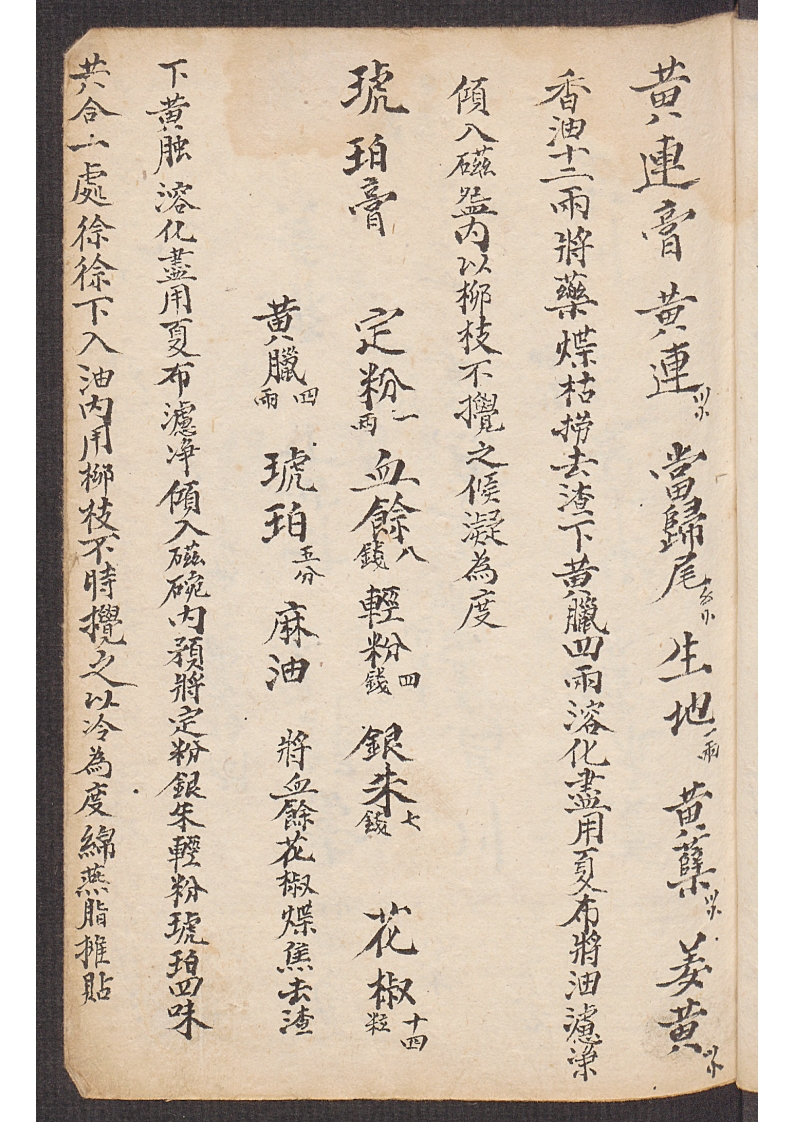 黃連膏 黃連 當歸尾 生地一兩 黃蘗 姜黃
香油十二兩將藥煠枯撈去渣下黃臘四兩溶化盡用夏布將油濾淨
傾入磁盌內以柳枝不攪之候凝為度
琥珀膏 定粉一兩 血餘八錢 輕粉四錢 銀朱七錢 花椒十四粒
黃臘四兩 琥珀五分 麻油 將血餘花椒煠焦去渣
下黃融溶化盡用夏布濾净傾入磁碗內預將定粉銀朱輕粉琥珀四味
共合一處徐徐下入油內用柳枝不時攪之以冷為度綿燕脂摊貼